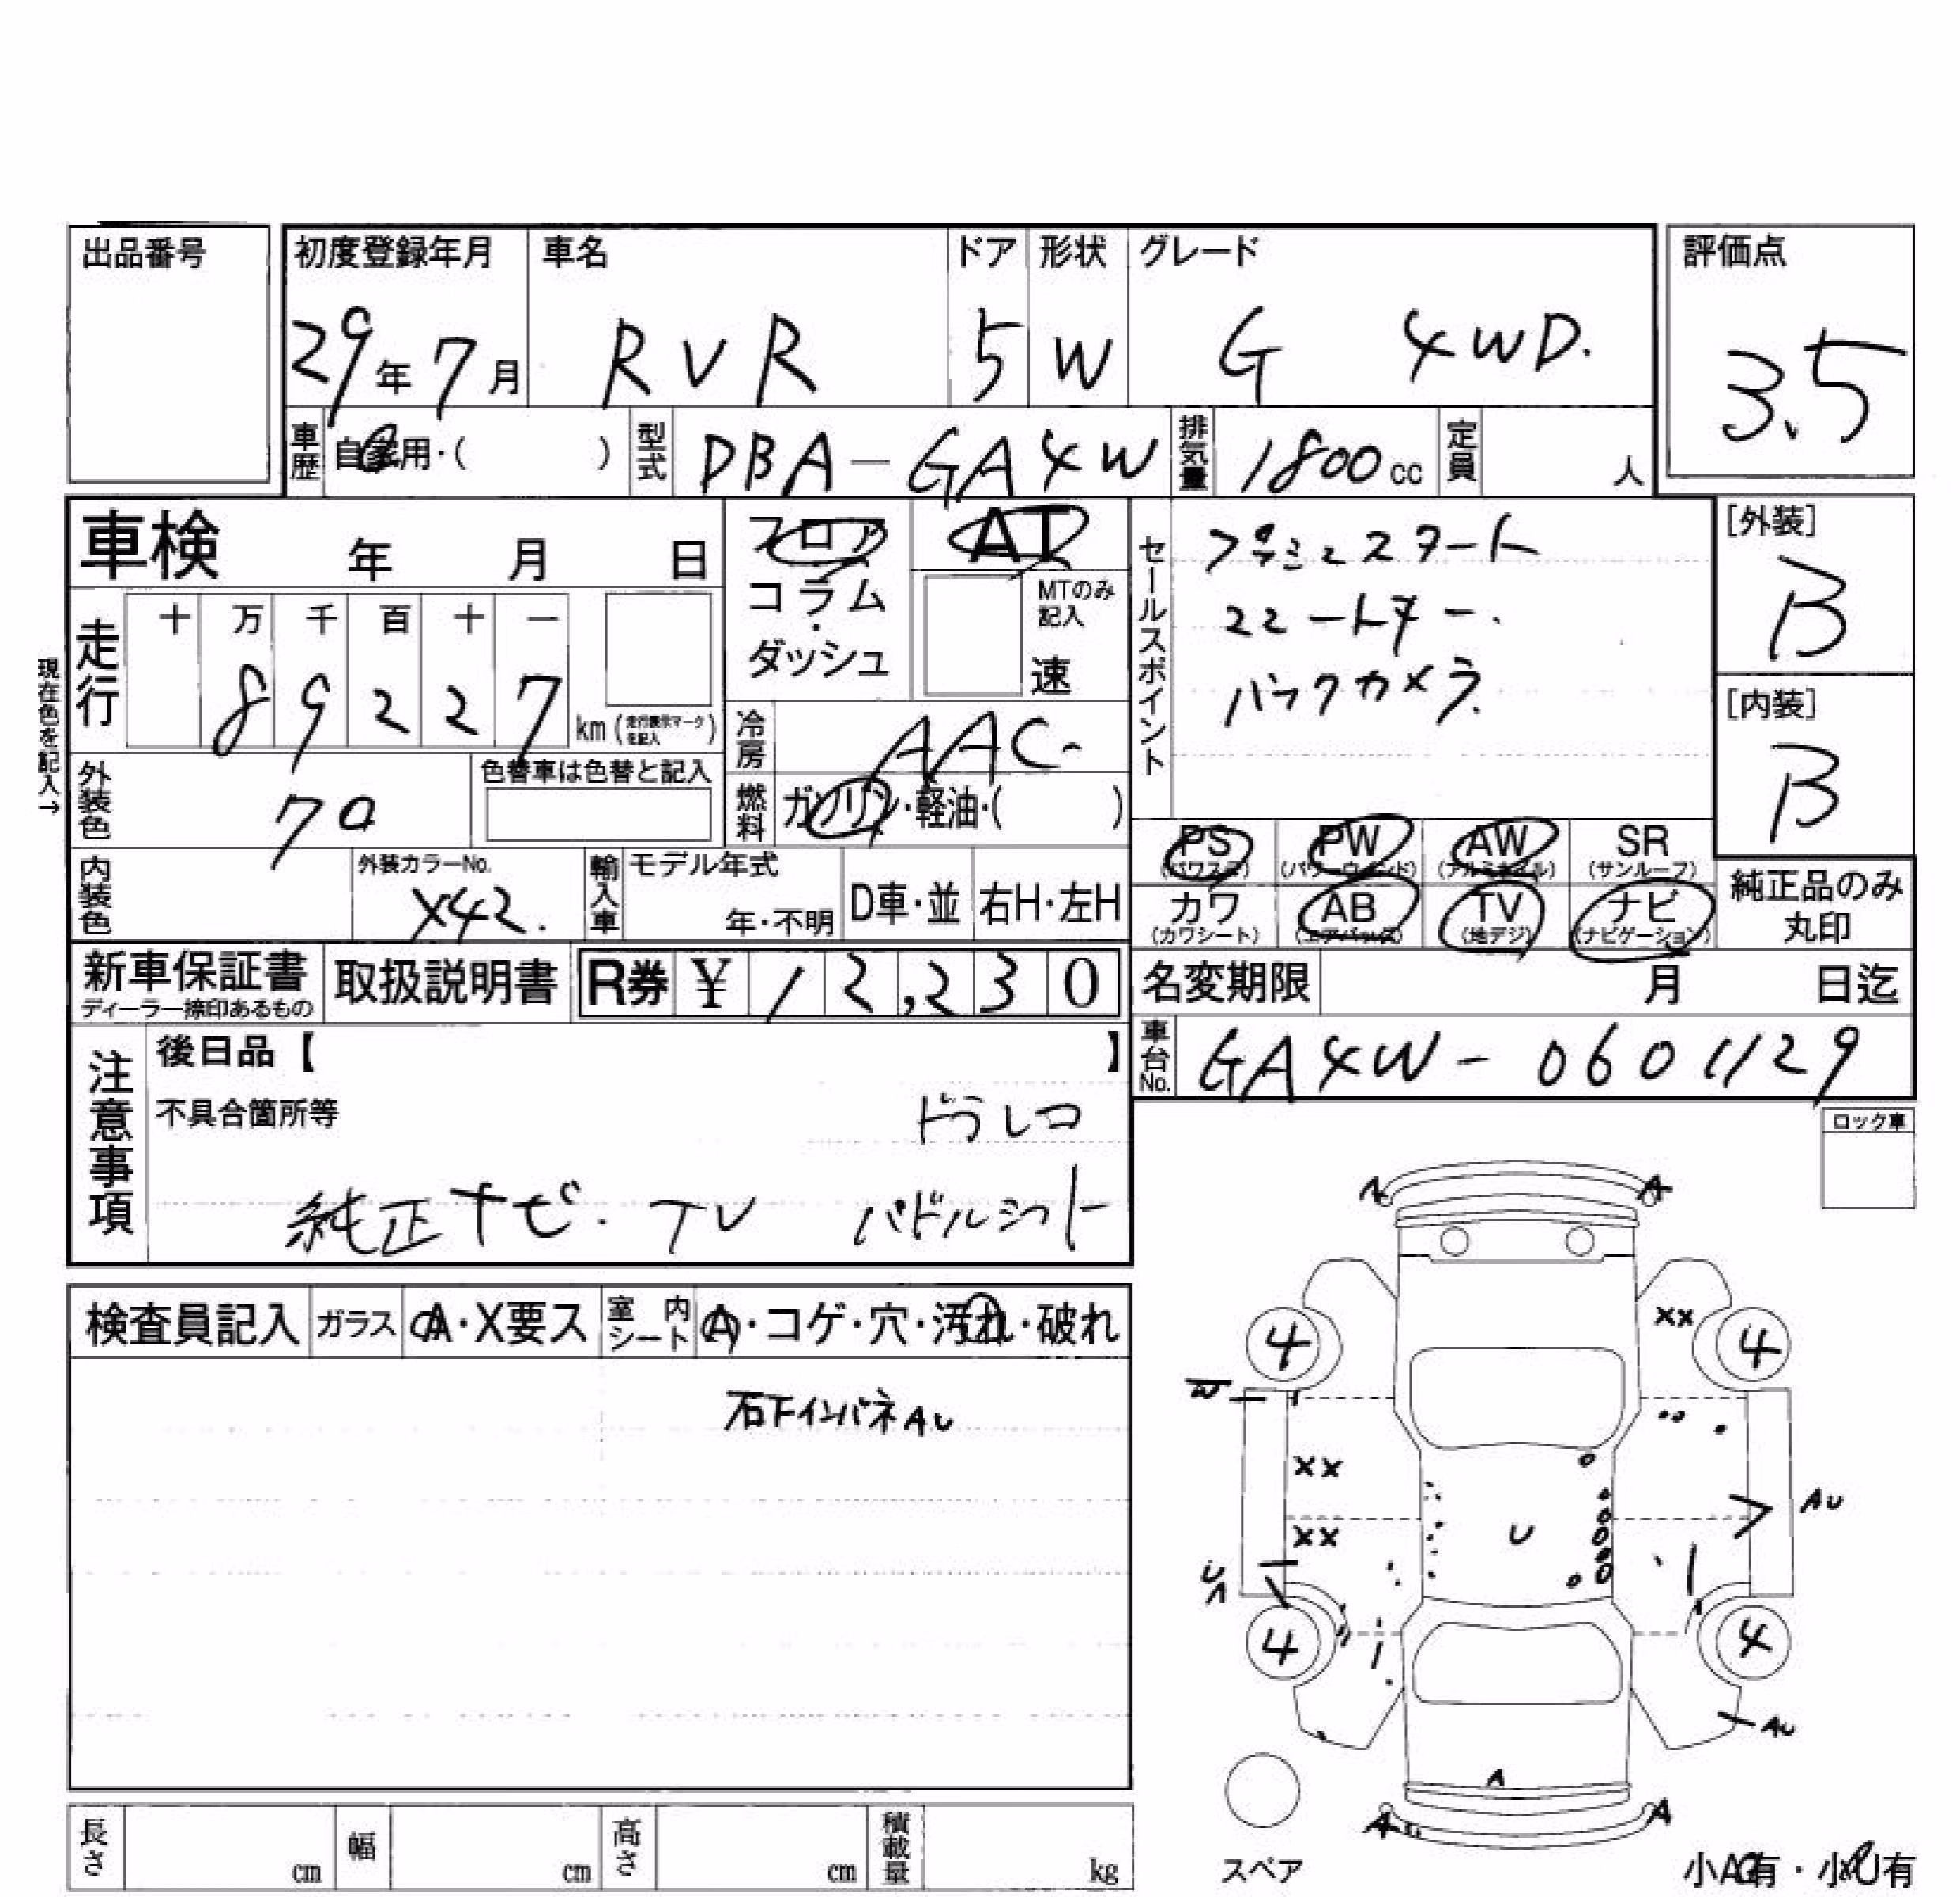 出品番号
初度登録年月 車名 ドア 形状 グレード 評価点
29年7月 RVR 5 W G 4WD. 3.5
車歴 自家用・( ) 型式 DBA-GA4W 排気量 1800cc 定員 人
車検 年 月 日
フロア AT
コラム・ MTのみ記入
ダッシュ 速
セールスポイント
プッシュスタート
スマートキー.
バックカメラ.
[外装]
B
[内装]
B
現在色を記入→
走行 十 万 千 百 十 一
8 9 2 2 7 km (走行表示マークを記入)
冷房 AAC
外装色 色替車は色替と記入
燃料 ガソリン・軽油・( )
PS PW AW SR
(パワステ) (パワーウィンド) (アルミホイル) (サンルーフ)
カワ AB TV ナビ
(カワシート) (エアバッグ) (地デジ) (ナビゲーション)
純正品のみ
丸印
内装色 外装カラーNo. X42. 輸入車 モデル年式 年・不明 D車・並 右H・左H
新車保証書 取扱説明書 R券 ¥ 12,230
ディーラー捺印あるもの
名変期限 月 日迄
車台No. GA4W-0601129
注意事項
後日品【 】
不具合箇所等 ドラレコ
純正ナビ・TV パドルシフト
ロック車
検査員記入 ガラス A・X要ス 室内シート A・コゲ・穴・汚れ・破れ
石下インパネAU
A A
XX
4 4
W
XX
AU
XX U
U A
4 4
AU
A
A A
スペア
小A有・小U有
長さ cm 幅 cm 高さ cm 積載量 kg